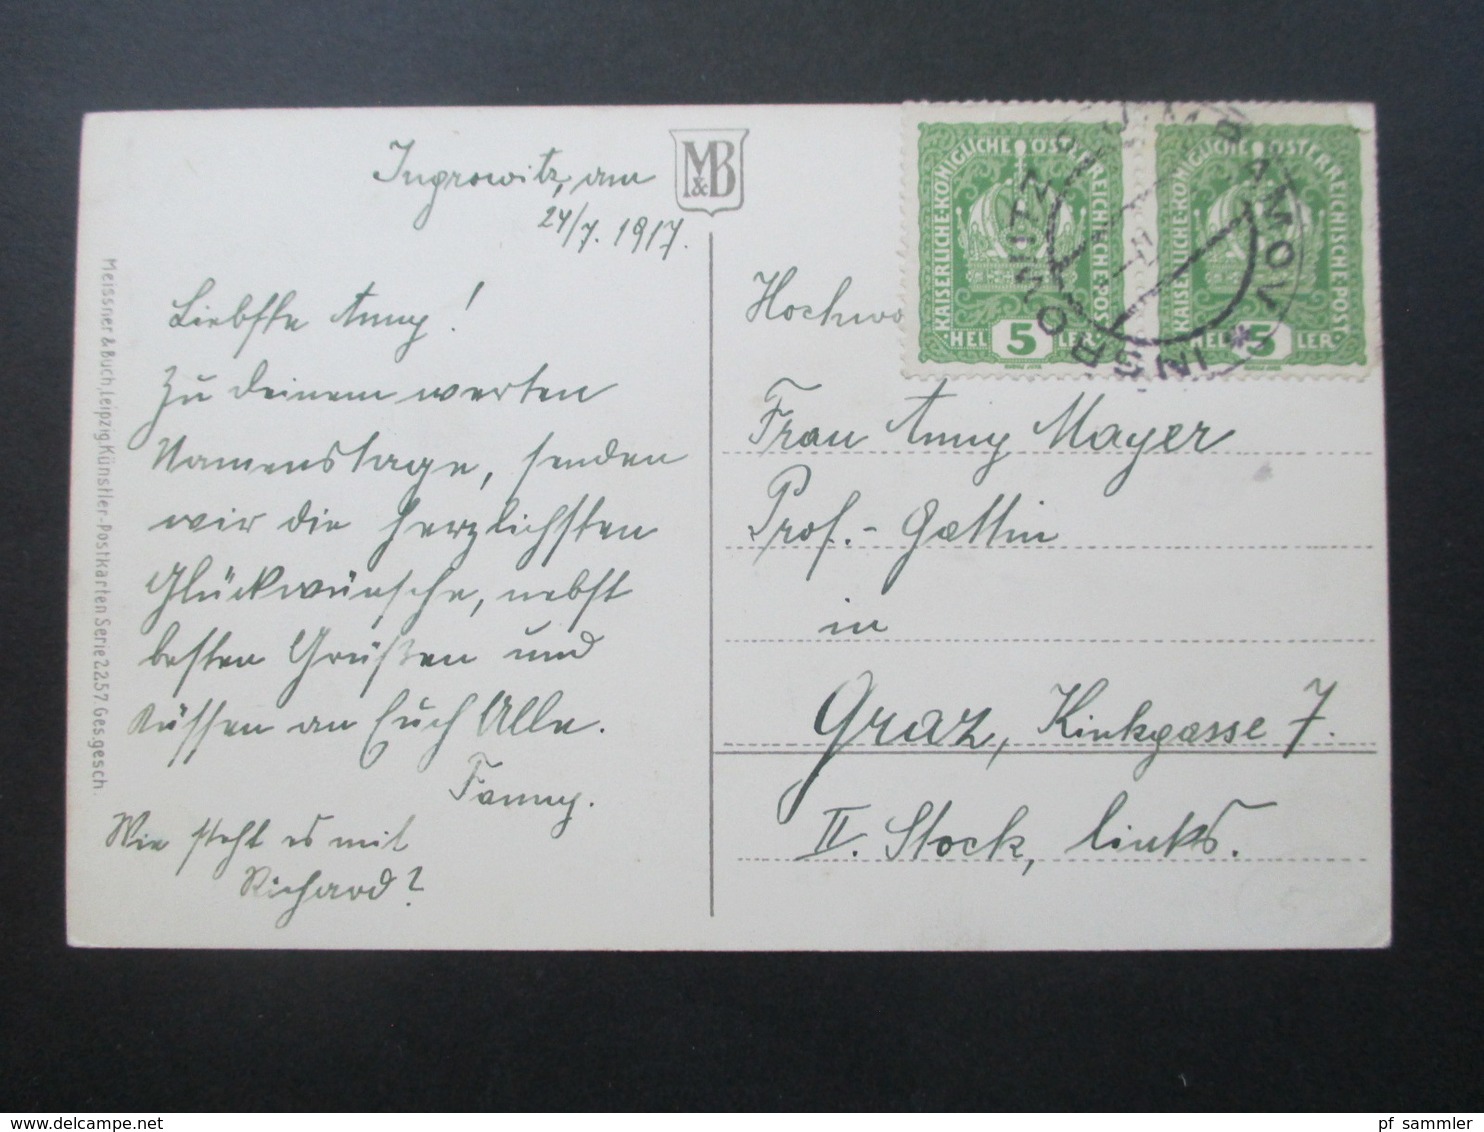 Ingrowitz, am
24/7. 1917.
M&B
Liebste Anny!
Zu Deinem werten
Namenstage, senden
wir die herzlichsten
Glückwünsche, nebst
besten Grüßen und
Küssen an Euch Alle.
Fanny.
Wie steht es mit
Richard?
Meissner & Buch, Leipzig. Künstler-Postkarten Serie 2257 Ges. gesch.
KAISERLICHE KÖNIGLICHE ÖSTERREICHISCHE POST
5
HELLER
KAISERLICHE KÖNIGLICHE ÖSTERREICHISCHE POST
5
HELLER
INGROWITZ
JIMRAMOV
Hochwo
Frau Anny Mayer
Prof.- Gattin
in
Graz, Kinkgasse 7.
II. Stock, links.
pf_sammler
www.delcampe.net